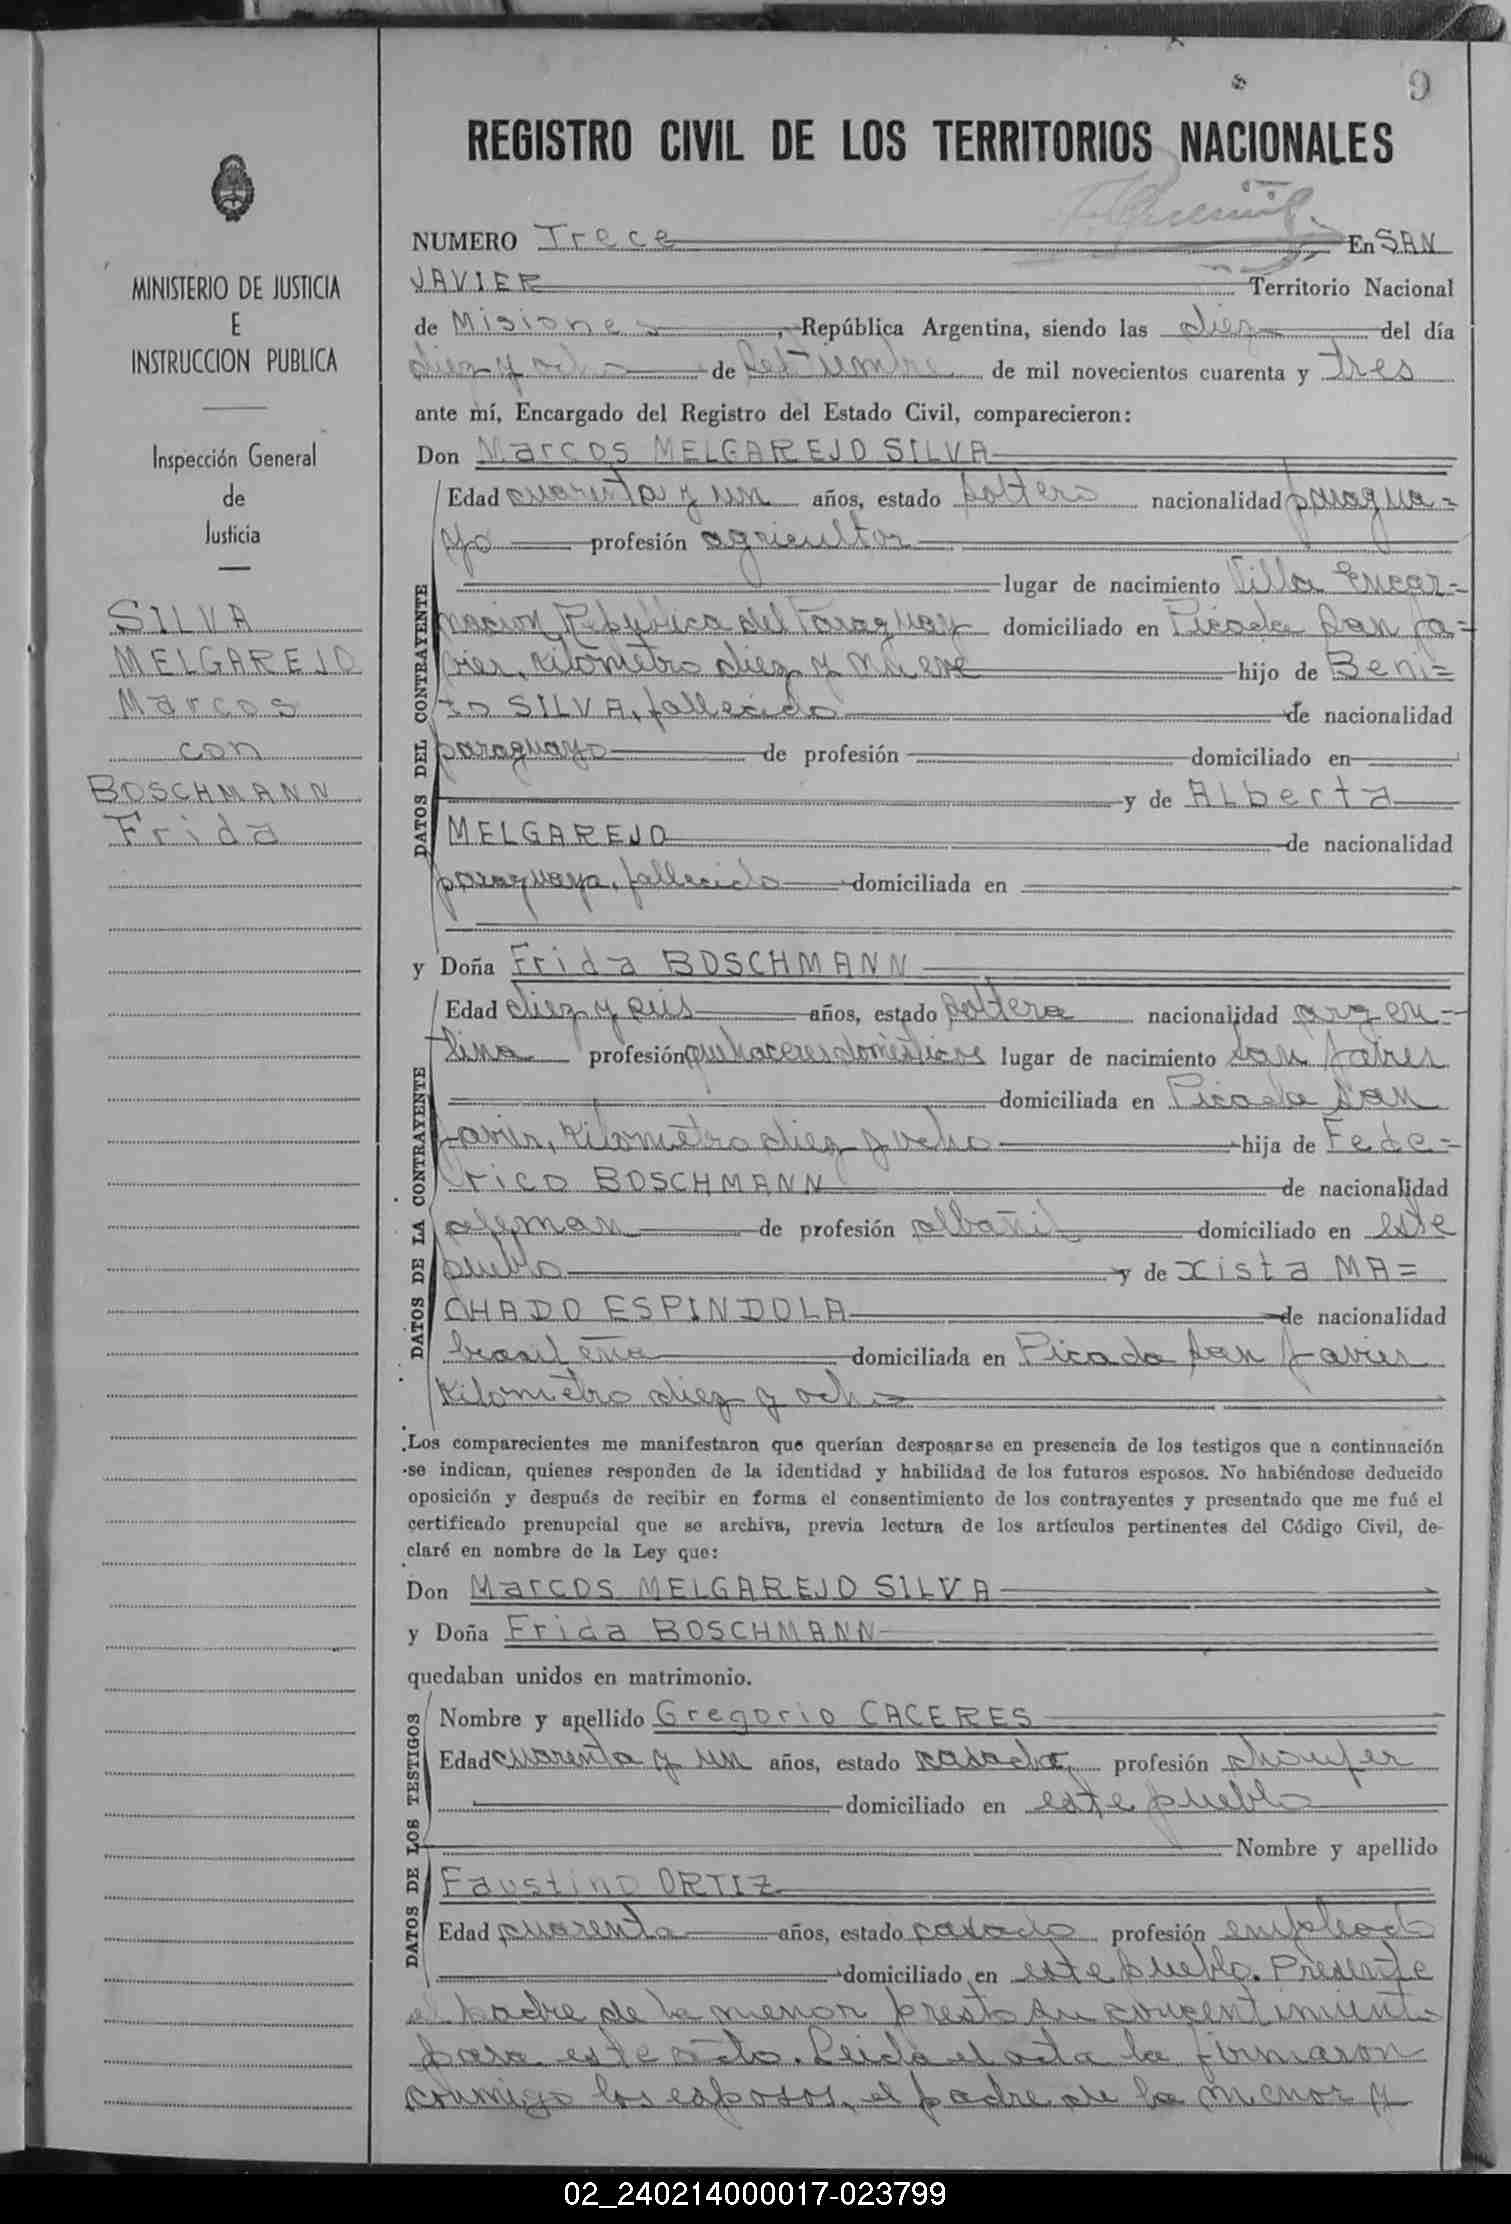 9
REGISTRO CIVIL DE LOS TERRITORIOS NACIONALES
MINISTERIO DE JUSTICIA
E
INSTRUCCION PUBLICA
Inspección General
de
Justicia
SILVA
MELGAREJO
Marcos
con
BOSCHMANN
Frida
NUMERO Trece En SAN
JAVIER Territorio Nacional
de Misiones, República Argentina, siendo las diez del día
diez y ocho de Setiembre de mil novecientos cuarenta y tres
ante mí, Encargado del Registro del Estado Civil, comparecieron:
Don Marcos MELGAREJO SILVA
DATOS DEL CONTRAYENTE
Edad cuarenta y un años, estado soltero nacionalidad paragua=
yo profesión agricultor
lugar de nacimiento Villa Encar=
nación República del Paraguay domiciliado en Picada San Ja=
vier, kilometro diez y nueve hijo de Beni=
to SILVA, fallecido de nacionalidad
paraguayo de profesión domiciliado en
y de Alberta
MELGAREJO de nacionalidad
paraguaya, fallecida domiciliada en
y Doña Frida BOSCHMANN
DATOS DE LA CONTRAYENTE
Edad diez y seis años, estado soltera nacionalidad argen=
tina profesión quehaceres domésticos lugar de nacimiento San Javier
domiciliada en Picada San
Javier, Kilometro diez y ocho hija de Fede=
rico BOSCHMANN de nacionalidad
aleman de profesión albañil domiciliado en este
pueblo y de Xista MA=
CHADO ESPINDOLA de nacionalidad
brasileña domiciliada en Picada San Javier
Kilometro diez y ocho
Los comparecientes me manifestaron que querían desposarse en presencia de los testigos que a continuación
se indican, quienes responden de la identidad y habilidad de los futuros esposos. No habiéndose deducido
oposición y después de recibir en forma el consentimiento de los contrayentes y presentado que me fué el
certificado prenupcial que se archiva, previa lectura de los artículos pertinentes del Código Civil, de-
claré en nombre de la Ley que:
Don Marcos MELGAREJO SILVA
y Doña Frida BOSCHMANN
quedaban unidos en matrimonio.
DATOS DE LOS TESTIGOS
Nombre y apellido Gregorio CACERES
Edad cuarenta y un años, estado casado, profesión choufer
domiciliado en este pueblo
Nombre y apellido
Faustino ORTIZ
Edad cuarenta años, estado casado profesión empleado
domiciliado en este pueblo. Presente
el padre de la menor presto su concentimiento
para este acto. Leida el acta la firmaron
conmigo los esposos, el padre de la menor y
02_240214000017-023799